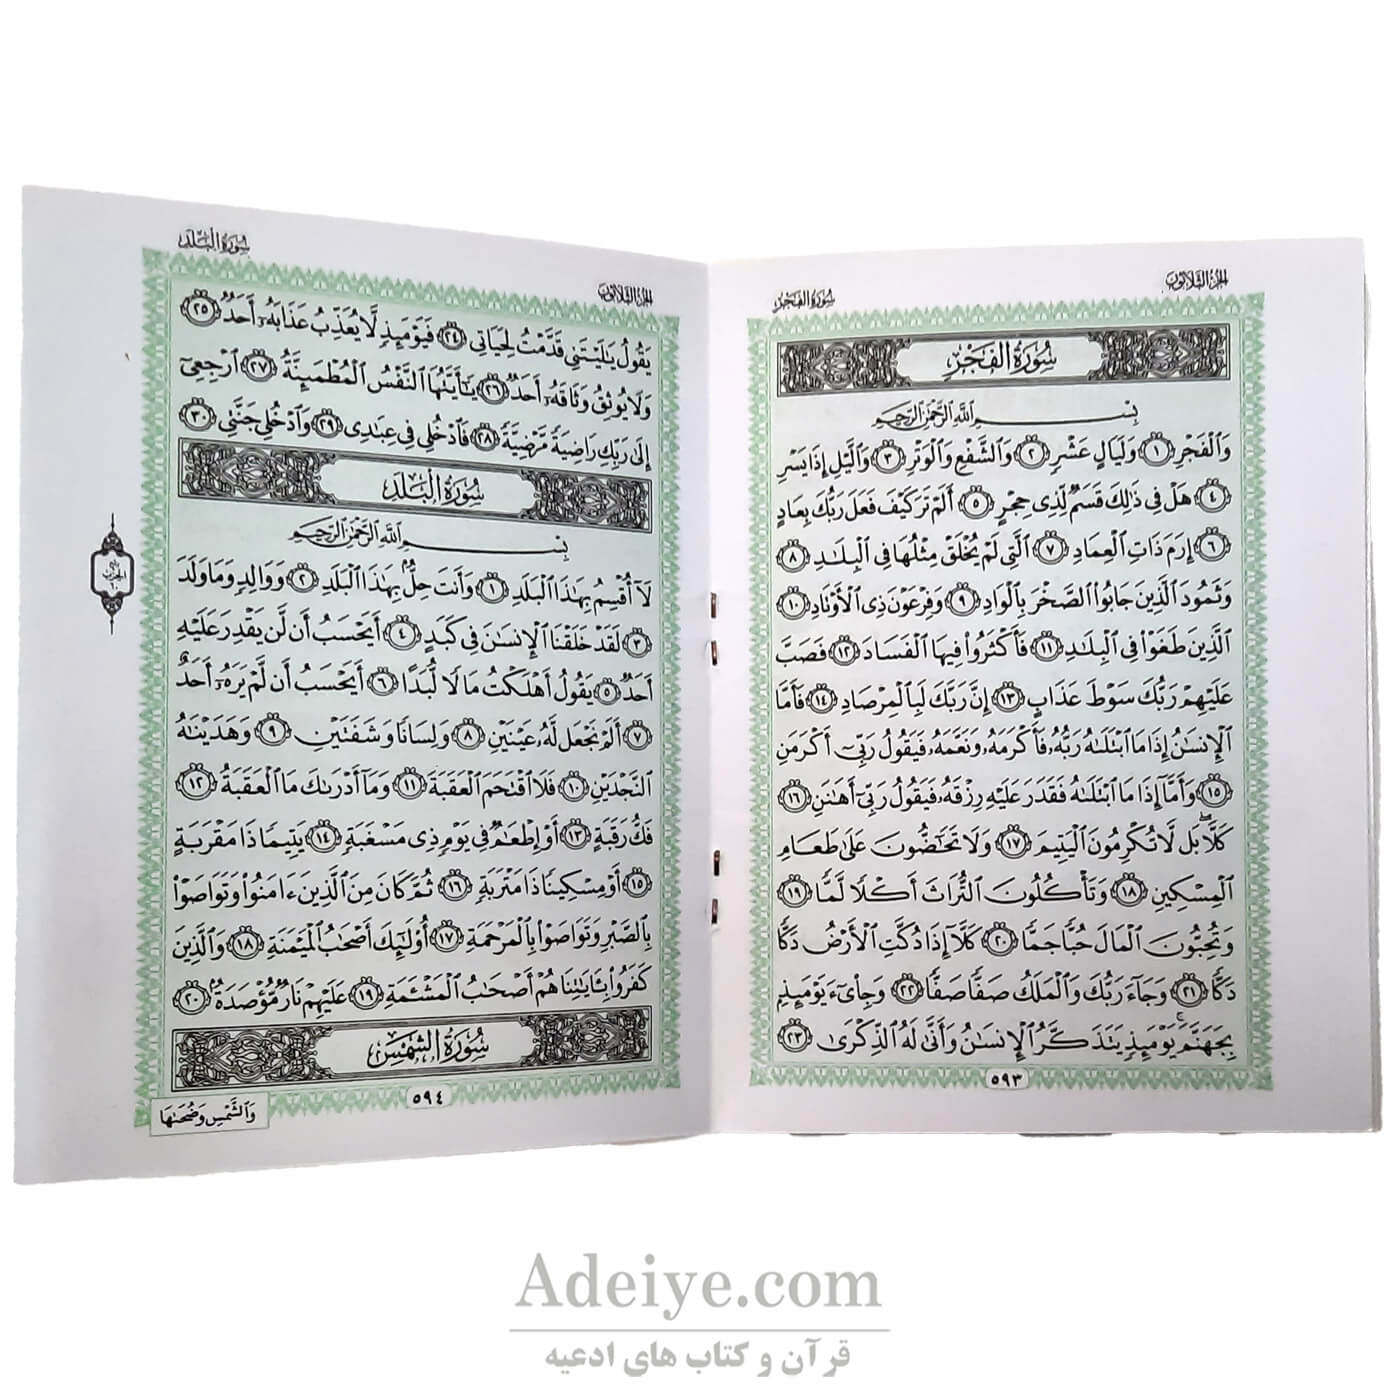 الجزء الثلاثون
سورة الفجر
سُورَةُ الفَجْرِ
بِسْمِ اللَّهِ الرَّحْمَٰنِ الرَّحِيمِ
وَالْفَجْرِ ﴿١﴾ وَلَيَالٍ عَشْرٍ ﴿٢﴾ وَالشَّفْعِ وَالْوَتْرِ ﴿٣﴾ وَاللَّيْلِ إِذَا يَسْرِ
﴿٤﴾ هَلْ فِي ذَٰلِكَ قَسَمٌ لِّذِي حِجْرٍ ﴿٥﴾ أَلَمْ تَرَ كَيْفَ فَعَلَ رَبُّكَ بِعَادٍ
﴿٦﴾ إِرَمَ ذَاتِ الْعِمَادِ ﴿٧﴾ الَّتِي لَمْ يُخْلَقْ مِثْلُهَا فِي الْبِلَادِ ﴿٨﴾
وَثَمُودَ الَّذِينَ جَابُوا الصَّخْرَ بِالْوَادِ ﴿٩﴾ وَفِرْعَوْنَ ذِي الْأَوْتَادِ ﴿١٠﴾
الَّذِينَ طَغَوْا فِي الْبِلَادِ ﴿١١﴾ فَأَكْثَرُوا فِيهَا الْفَسَادَ ﴿١٢﴾ فَصَبَّ
عَلَيْهِمْ رَبُّكَ سَوْطَ عَذَابٍ ﴿١٣﴾ إِنَّ رَبَّكَ لَبِالْمِرْصَادِ ﴿١٤﴾ فَأَمَّا
الْإِنسَانُ إِذَا مَا ابْتَلَاهُ رَبُّهُ فَأَكْرَمَهُ وَنَعَّمَهُ فَيَقُولُ رَبِّي أَكْرَمَنِ
﴿١٥﴾ وَأَمَّا إِذَا مَا ابْتَلَاهُ فَقَدَرَ عَلَيْهِ رِزْقَهُ فَيَقُولُ رَبِّي أَهَانَنِ ﴿١٦﴾
كَلَّا بَل لَّا تُكْرِمُونَ الْيَتِيمَ ﴿١٧﴾ وَلَا تَحَاضُّونَ عَلَىٰ طَعَامِ
الْمِسْكِينِ ﴿١٨﴾ وَتَأْكُلُونَ التُّرَاثَ أَكْلًا لَّمًّا ﴿١٩﴾
وَتُحِبُّونَ الْمَالَ حُبًّا جَمًّا ﴿٢٠﴾ كَلَّا إِذَا دُكَّتِ الْأَرْضُ دَكًّا
دَكًّا ﴿٢١﴾ وَجَاءَ رَبُّكَ وَالْمَلَكُ صَفًّا صَفًّا ﴿٢٢﴾ وَجِايءَ يَوْمَئِذٍ
بِجَهَنَّمَ يَوْمَئِذٍ يَتَذَكَّرُ الْإِنسَانُ وَأَنَّىٰ لَهُ الذِّكْرَىٰ ﴿٢٣﴾
٥٩٣
الجزء الثلاثون
سورة البلد
يَقُولُ يَا لَيْتَنِي قَدَّمْتُ لِحَيَاتِي ﴿٢٤﴾ فَيَوْمَئِذٍ لَّا يُعَذِّبُ عَذَابَهُ أَحَدٌ ﴿٢٥﴾
وَلَا يُوثِقُ وَثَاقَهُ أَحَدٌ ﴿٢٦﴾ يَا أَيَّتُهَا النَّفْسُ الْمُطْمَئِنَّةُ ﴿٢٧﴾ ارْجِعِي
إِلَىٰ رَبِّكِ رَاضِيَةً مَّرْضِيَّةً ﴿٢٨﴾ فَادْخُلِي فِي عِبَادِي ﴿٢٩﴾ وَادْخُلِي جَنَّتِي ﴿٣٠﴾
سُورَةُ البَلَدِ
بِسْمِ اللَّهِ الرَّحْمَٰنِ الرَّحِيمِ
لَا أُقْسِمُ بِهَٰذَا الْبَلَدِ ﴿١﴾ وَأَنتَ حِلٌّ بِهَٰذَا الْبَلَدِ ﴿٢﴾ وَوَالِدٍ وَمَا وَلَدَ
﴿٣﴾ لَقَدْ خَلَقْنَا الْإِنسَانَ فِي كَبَدٍ ﴿٤﴾ أَيَحْسَبُ أَن لَّن يَقْدِرَ عَلَيْهِ
أَحَدٌ ﴿٥﴾ يَقُولُ أَهْلَكْتُ مَالًا لُّبَدًا ﴿٦﴾ أَيَحْسَبُ أَن لَّمْ يَرَهُ أَحَدٌ
﴿٧﴾ أَلَمْ نَجْعَل لَّهُ عَيْنَيْنِ ﴿٨﴾ وَلِسَانًا وَشَفَتَيْنِ ﴿٩﴾ وَهَدَيْنَاهُ
النَّجْدَيْنِ ﴿١٠﴾ فَلَا اقْتَحَمَ الْعَقَبَةَ ﴿١١﴾ وَمَا أَدْرَاكَ مَا الْعَقَبَةُ ﴿١٢﴾
فَكُّ رَقَبَةٍ ﴿١٣﴾ أَوْ إِطْعَامٌ فِي يَوْمٍ ذِي مَسْغَبَةٍ ﴿١٤﴾ يَتِيمًا ذَا مَقْرَبَةٍ
﴿١٥﴾ أَوْ مِسْكِينًا ذَا مَتْرَبَةٍ ﴿١٦﴾ ثُمَّ كَانَ مِنَ الَّذِينَ ءَامَنُوا وَتَوَاصَوْا
بِالصَّبْرِ وَتَوَاصَوْا بِالْمَرْحَمَةِ ﴿١٧﴾ أُولَٰئِكَ أَصْحَابُ الْمَيْمَنَةِ ﴿١٨﴾ وَالَّذِينَ
كَفَرُوا بِـَٔايَاتِنَا هُمْ أَصْحَابُ الْمَشْـَٔمَةِ ﴿١٩﴾ عَلَيْهِمْ نَارٌ مُّؤْصَدَةٌ ﴿٢٠﴾
سُورَةُ الشَّمْسِ
٥٩٤
وَالشَّمْسِ وَضُحَاهَا
Adeiye.com
قرآن و کتاب های ادعیه